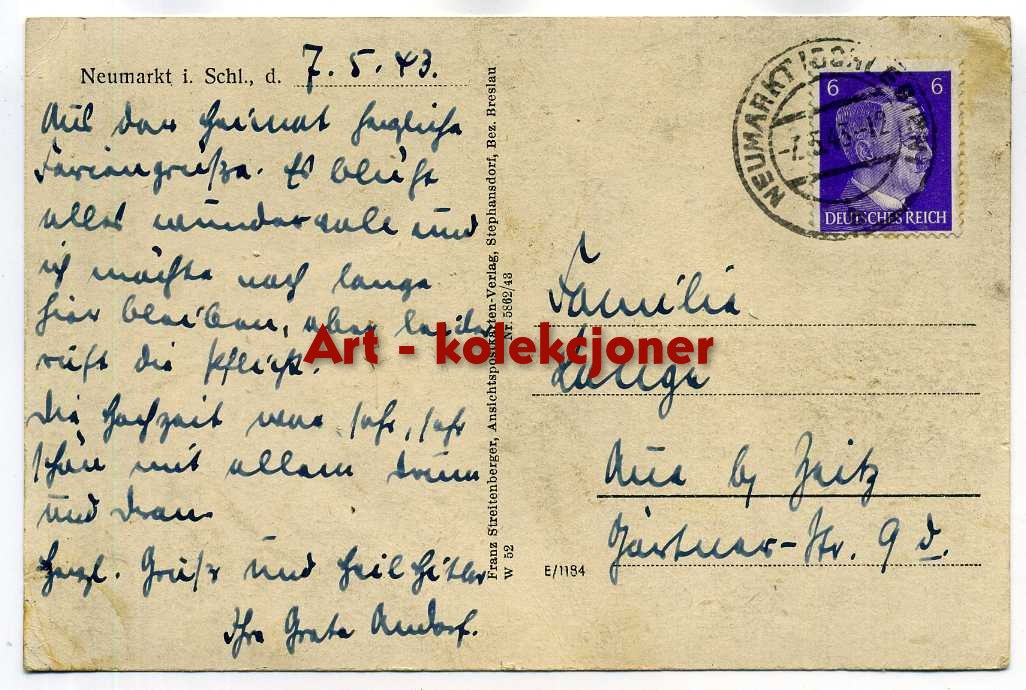 Neumarkt i. Schl., d. 7. 5. 43.
Aus der Heimat herzliche
Feriengrüße. Es blüht
alles wundervoll und
ich möchte noch lange
hier bleiben, aber leider
ruft die Pflicht.
Die Hochzeit war sehr, sehr
schön mit allem Drum
und Dran.
Herzl. Gruß und Heil Hitler
Ihre Grete
Franz Streitenberger, Ansichtspostkarten-Verlag, Stephansdorf, Bez. Breslau
W 52 Nr. 5862/43
E/1184
NEUMARKT (SCHLESIEN)
-7.5.43-12
6 6
DEUTSCHES REICH
Familie
Lange
Aue b/ Zeitz
Gärtner-Str. 9 d.
Art - kolekcjoner